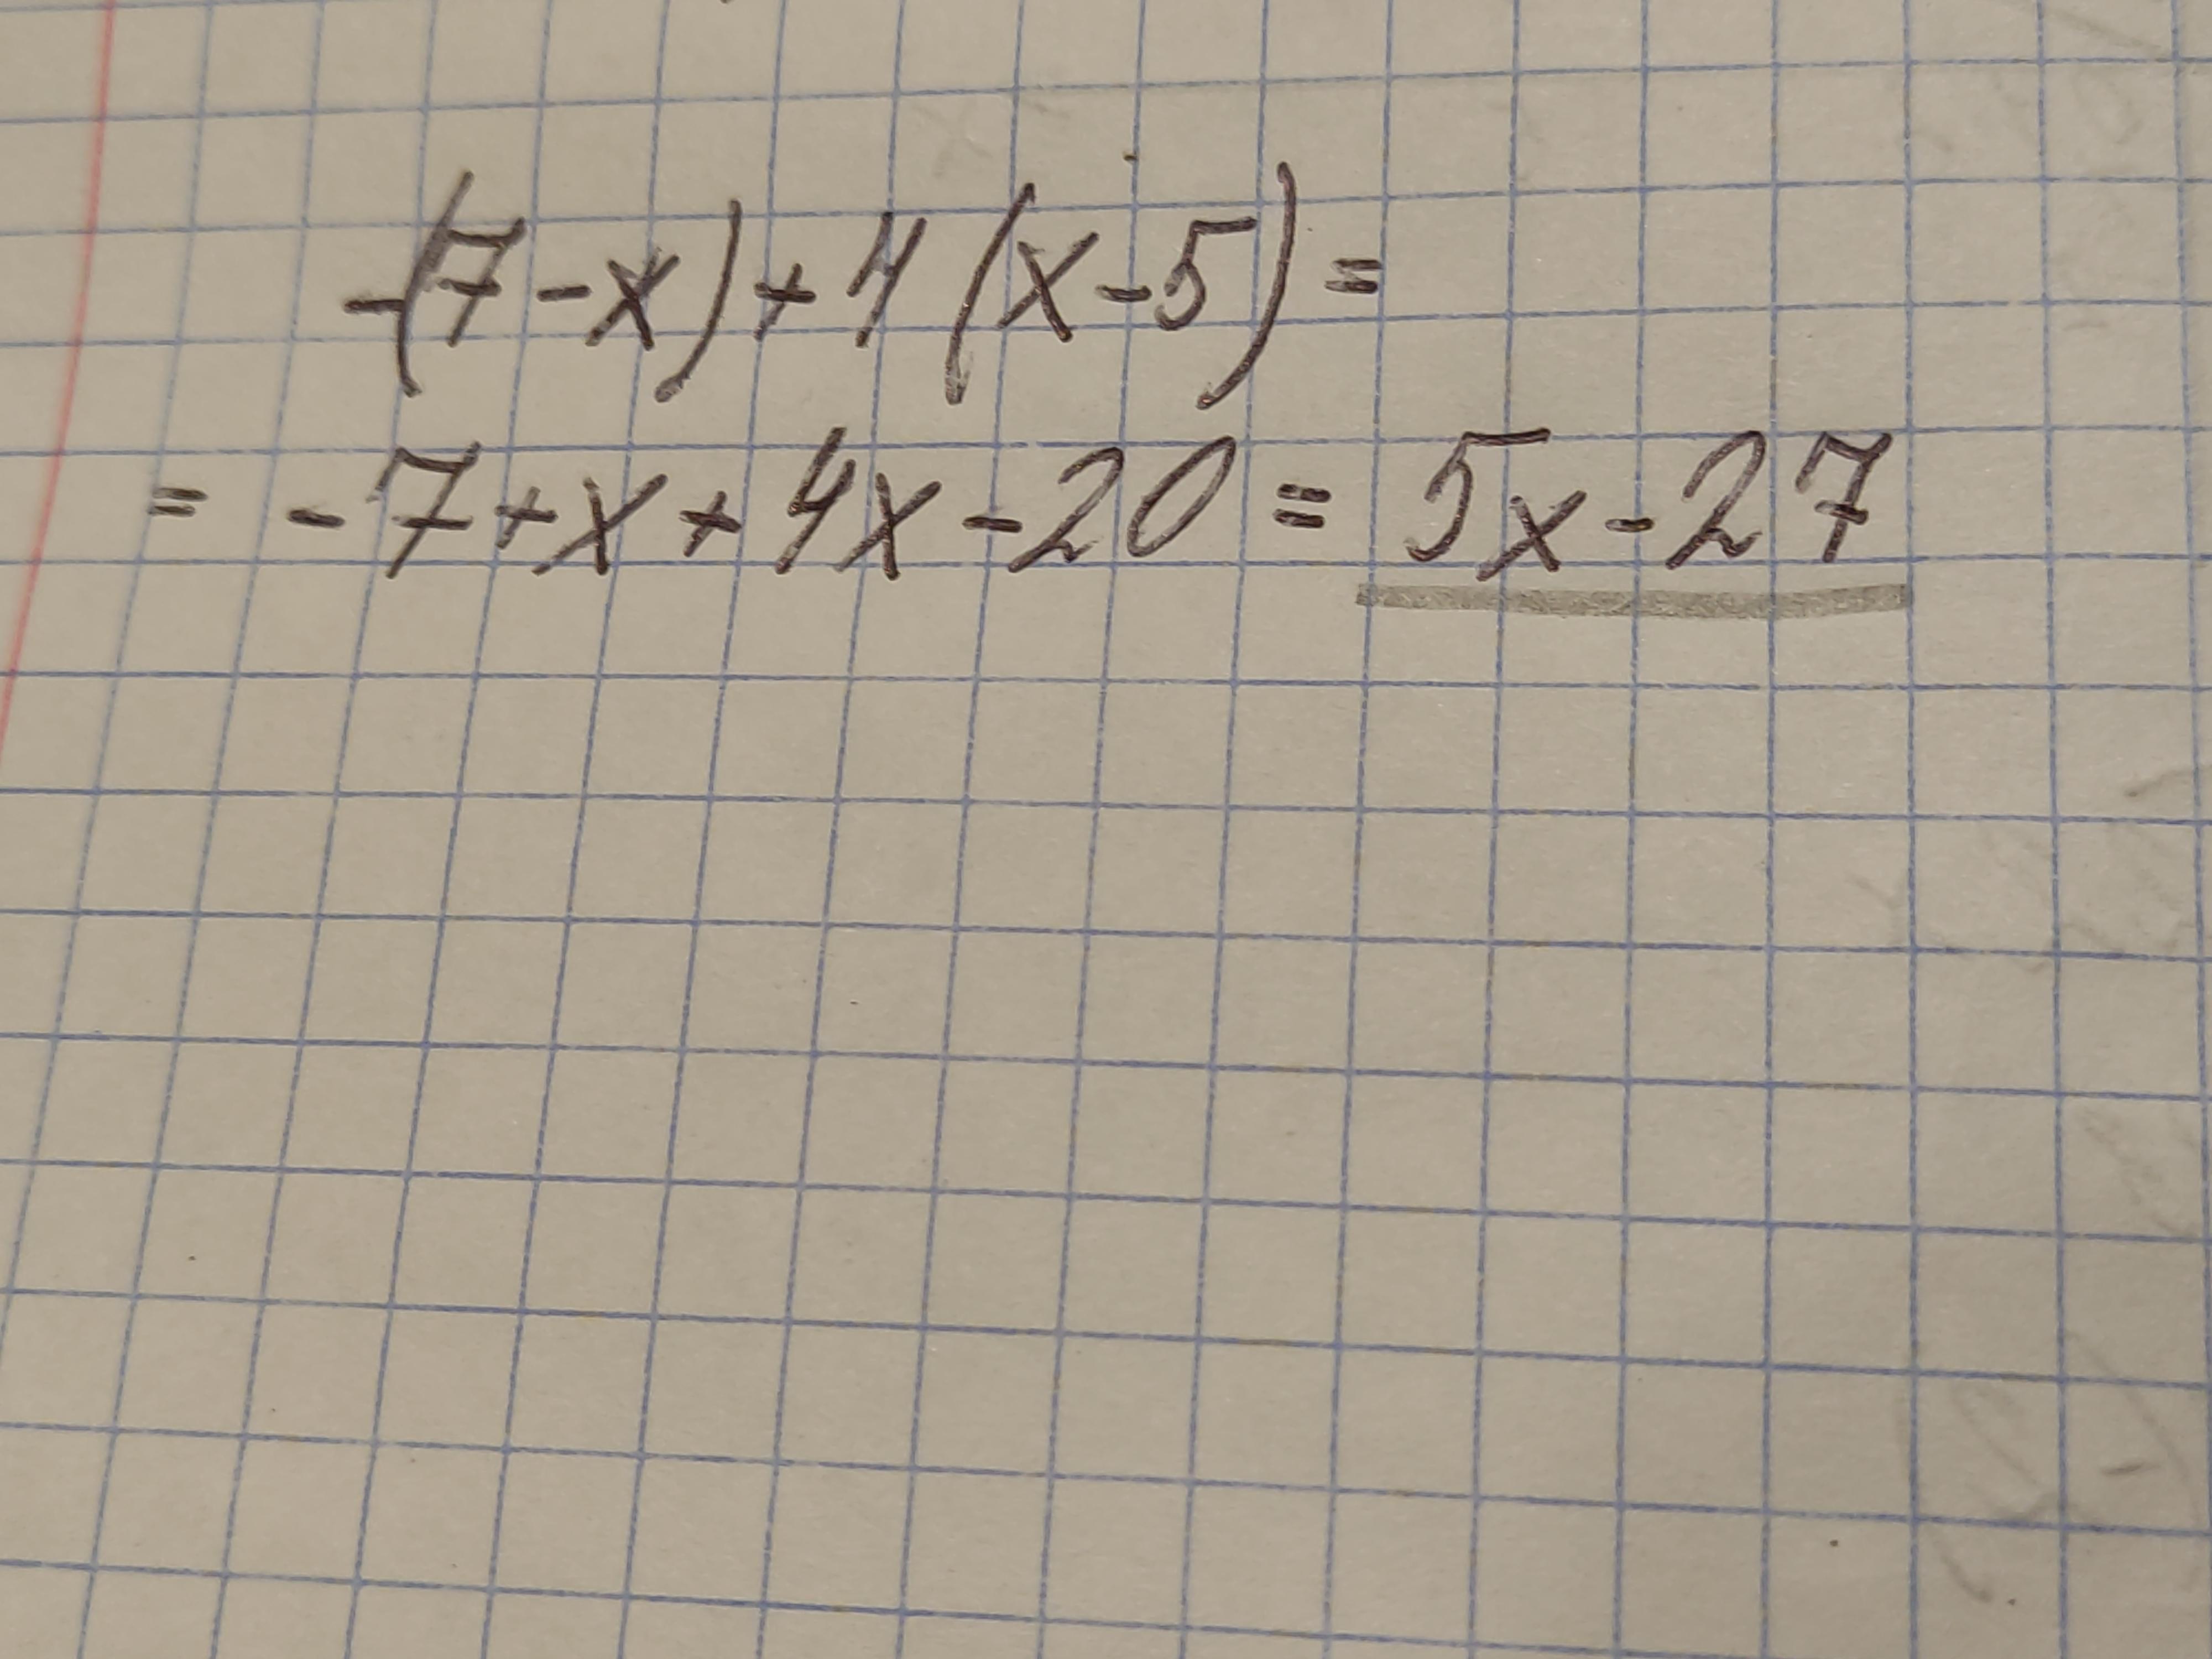 -(7-x)+4(x-5)=
= -7+x+4x-20= 5x-27